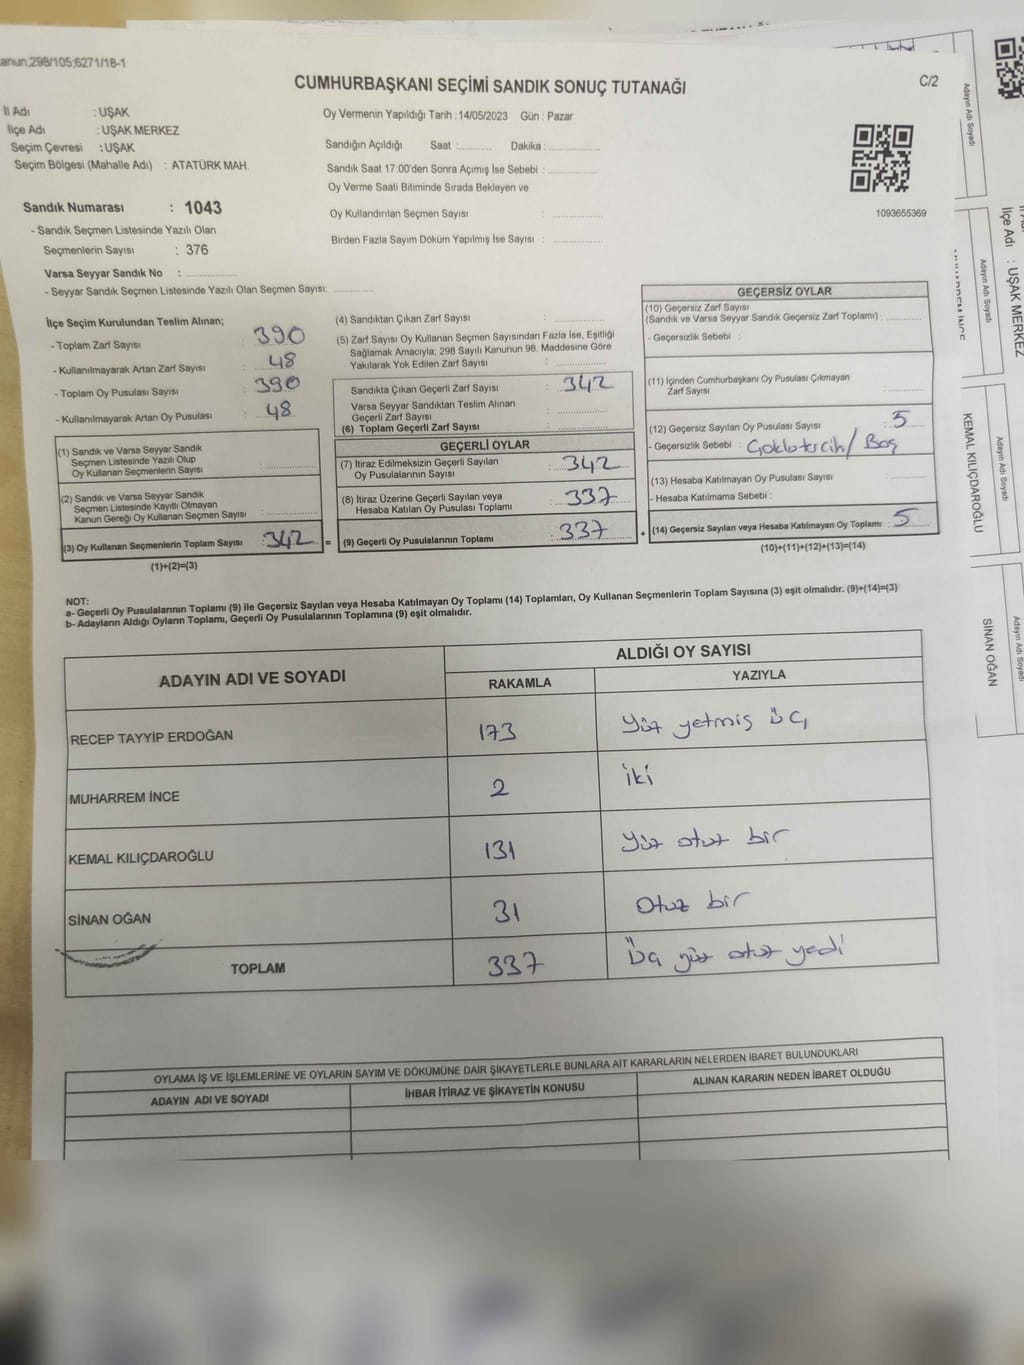 anun;298/105;6271/18-1
CUMHURBAŞKANI SEÇİMİ SANDIK SONUÇ TUTANAĞI
C/2
İl Adı : UŞAK
İlçe Adı : UŞAK MERKEZ
Seçim Çevresi : UŞAK
Seçim Bölgesi (Mahalle Adı) : ATATÜRK MAH.
Oy Vermenin Yapıldığı Tarih : 14/05/2023 Gün : Pazar
Sandığın Açıldığı Saat :........... Dakika :................
Sandık Saat 17:00'den Sonra Açımış İse Sebebi :................
Oy Verme Saati Bitiminde Sırada Bekleyen ve
Oy Kullandırılan Seçmen Sayısı :................
Birden Fazla Sayım Döküm Yapılmış İse Sayısı :................
1093655369
Sandık Numarası : 1043
- Sandık Seçmen Listesinde Yazılı Olan
Seçmenlerin Sayısı : 376
Varsa Seyyar Sandık No :................
- Seyyar Sandık Seçmen Listesinde Yazılı Olan Seçmen Sayısı:............
İlçe Seçim Kurulundan Teslim Alınan;
- Toplam Zarf Sayısı : 390
- Kullanılmayarak Artan Zarf Sayısı : 48
- Toplam Oy Pusulası Sayısı : 390
- Kullanılmayarak Artan Oy Pusulası : 48
(1) Sandık ve Varsa Seyyar Sandık
Seçmen Listesinde Yazılı Olup
Oy Kullanan Seçmenlerin Sayısı :................
(2) Sandık ve Varsa Seyyar Sandık
Seçmen Listesinde Kayıtlı Olmayan
Kanun Gereği Oy Kullanan Seçmen Sayısı :................
(3) Oy Kullanan Seçmenlerin Toplam Sayısı : 342 =
(1)+(2)=(3)
(4) Sandıktan Çıkan Zarf Sayısı :................
(5) Zarf Sayısı Oy Kullanan Seçmen Sayısından Fazla İse, Eşitliği
Sağlamak Amacıyla, 298 Sayılı Kanunun 98. Maddesine Göre
Yakılarak Yok Edilen Zarf Sayısı :................
Sandıkta Çıkan Geçerli Zarf Sayısı : 342
Varsa Seyyar Sandıktan Teslim Alınan
Geçerli Zarf Sayısı :................
(6) Toplam Geçerli Zarf Sayısı :................
GEÇERLİ OYLAR
(7) İtiraz Edilmeksizin Geçerli Sayılan
Oy Pusulalarının Sayısı : 342
(8) İtiraz Üzerine Geçerli Sayılan veya
Hesaba Katılan Oy Pusulası Toplamı : 337
(9) Geçerli Oy Pusulalarının Toplamı : 337 +
GEÇERSİZ OYLAR
(10) Geçersiz Zarf Sayısı
(Sandık ve Varsa Seyyar Sandık Geçersiz Zarf Toplamı) :............
- Geçersizlik Sebebi :
(11) İçinden Cumhurbaşkanı Oy Pusulası Çıkmayan
Zarf Sayısı :............
(12) Geçersiz Sayılan Oy Pusulası Sayısı : 5
- Geçersizlik Sebebi : Çoklu tercih / Boş
(13) Hesaba Katılmayan Oy Pusulası Sayısı :............
- Hesaba Katılmama Sebebi :
(14) Geçersiz Sayılan veya Hesaba Katılmayan Oy Toplamı : 5
(10)+(11)+(12)+(13)=(14)
NOT:
a- Geçerli Oy Pusulalarının Toplamı (9) ile Geçersiz Sayılan veya Hesaba Katılmayan Oy Toplamı (14) Toplamları, Oy Kullanan Seçmenlerin Toplam Sayısına (3) eşit olmalıdır. (9)+(14)=(3)
b- Adayların Aldığı Oyların Toplamı, Geçerli Oy Pusulalarının Toplamına (9) eşit olmalıdır.
ADAYIN ADI VE SOYADI
ALDIĞI OY SAYISI
RAKAMLA YAZIYLA
RECEP TAYYİP ERDOĞAN 173 Yüz yetmiş üç
MUHARREM İNCE 2 iki
KEMAL KILIÇDAROĞLU 131 Yüz otuz bir
SİNAN OĞAN 31 Otuz bir
TOPLAM 337 Üç yüz otuz yedi
OYLAMA İŞ VE İŞLEMLERİNE VE OYLARIN SAYIM VE DÖKÜMÜNE DAİR ŞİKAYETLERLE BUNLARA AİT KARARLARIN NELERDEN İBARET BULUNDUKLARI
ADAYIN ADI VE SOYADI İHBAR İTİRAZ VE ŞİKAYETİN KONUSU ALINAN KARARIN NEDEN İBARET OLDUĞU
Adayın Adı Soyadı
İlçe Adı : UŞAK MERKEZ
Adayın Adı Soyadı
Adayın Adı Soyadı
KEMAL KILIÇDAROĞLU
Adayın Adı Soyadı
SİNAN OĞAN